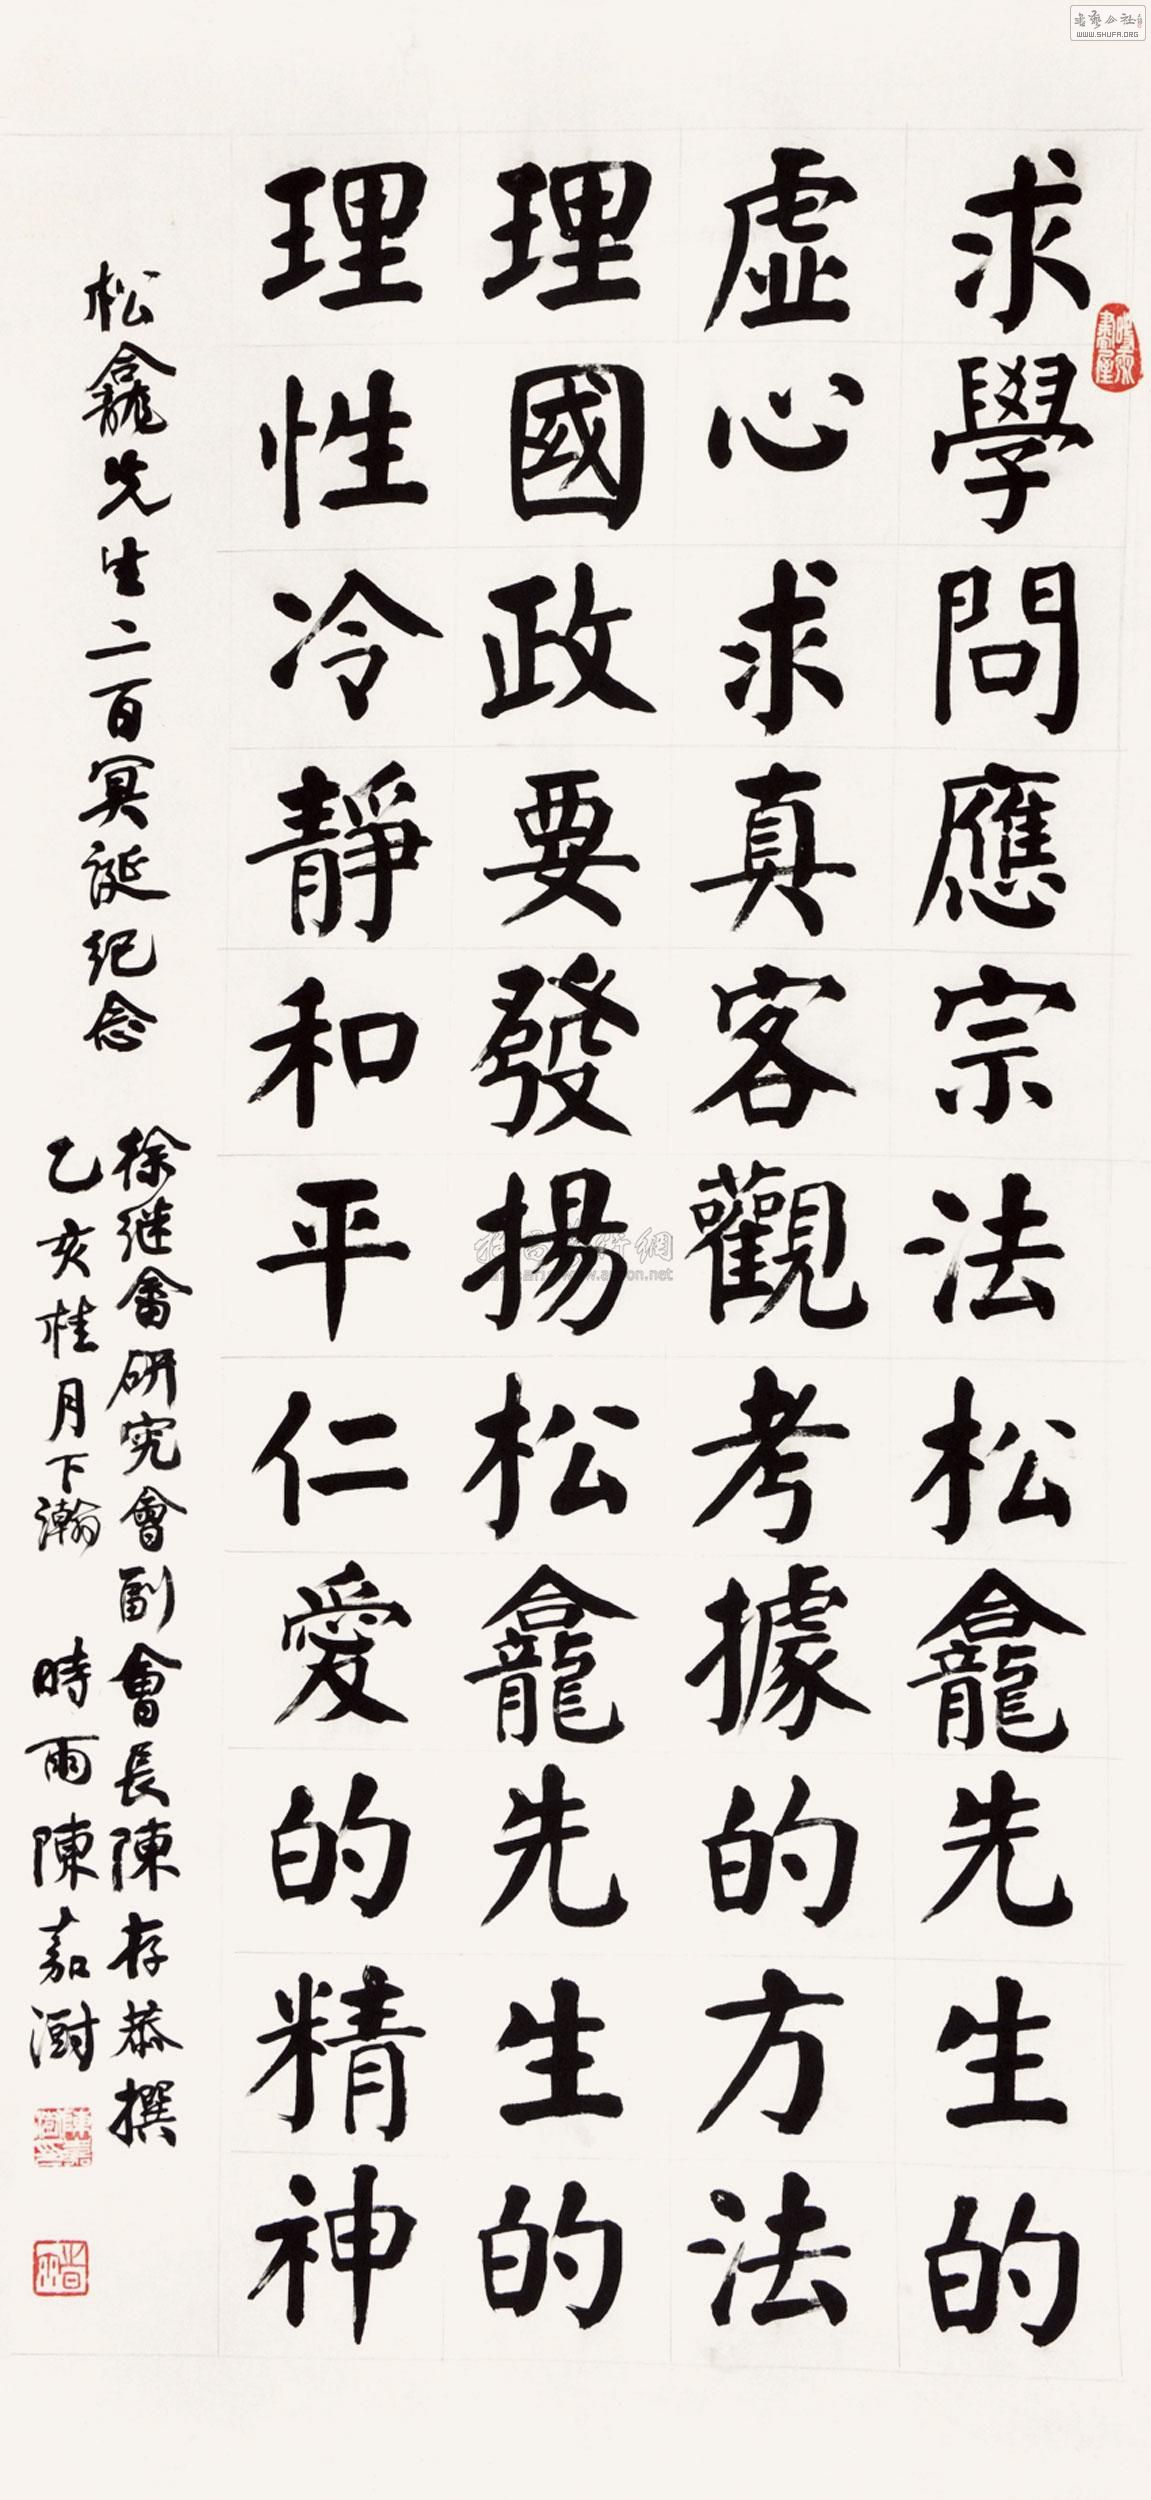 求學問應宗法松龕先生的
虛心求真客觀考據的方法
理國政要發揚松龕先生的
理性冷靜和平仁愛的精神
松龕先生二百冥誕紀念
徐继畬研究會副會長陳存恭撰
乙亥桂月下瀚
時雨陳嘉澍
WWW.SHUFA.ORG